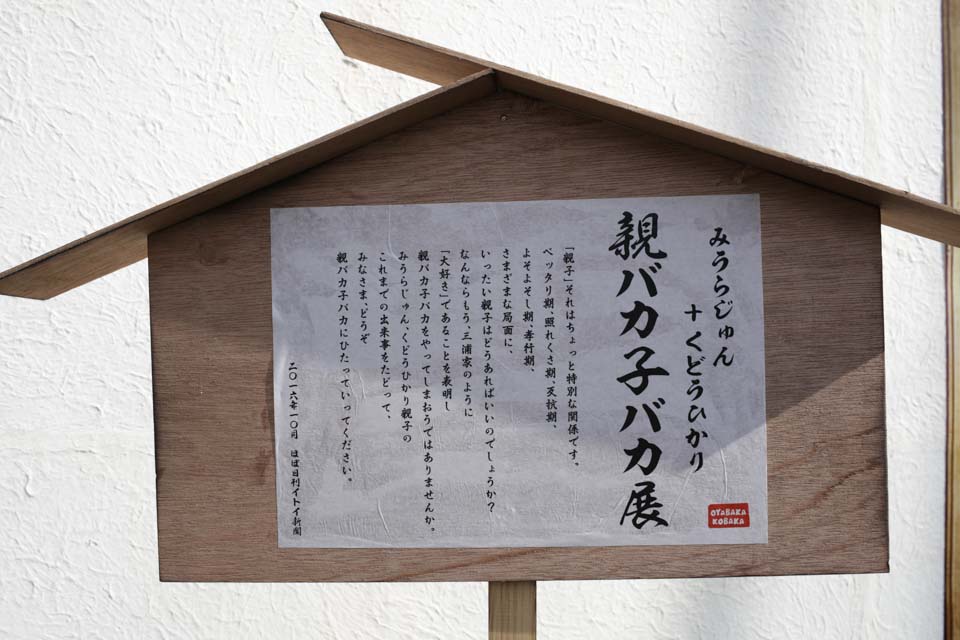 みうらじゅん
＋くどうひかり
親バカ子バカ展
OYABAKA
KOBAKA
「親子」それはちょっと特別な関係です。
ベッタリ期、照れくさ期、反抗期、
よそよそし期、孝行期、
さまざまな局面に、
いったい親子はどうあればいいのでしょうか？
なんならもう、三浦家のように
「大好き」であることを表明し
親バカ子バカをやってしまおうではありませんか。
みうらじゅん、くどうひかり親子の
これまでの出来事をたどって、
みなさま、どうぞ
親バカ子バカにひたっていってください。
二〇一六年一〇月　ほぼ日刊イトイ新聞